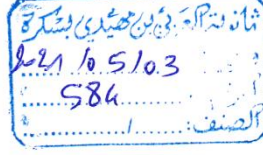 ثانوية العربي بن مهيدي بسكرة
2021/05/03
584
الصنف: ......../........